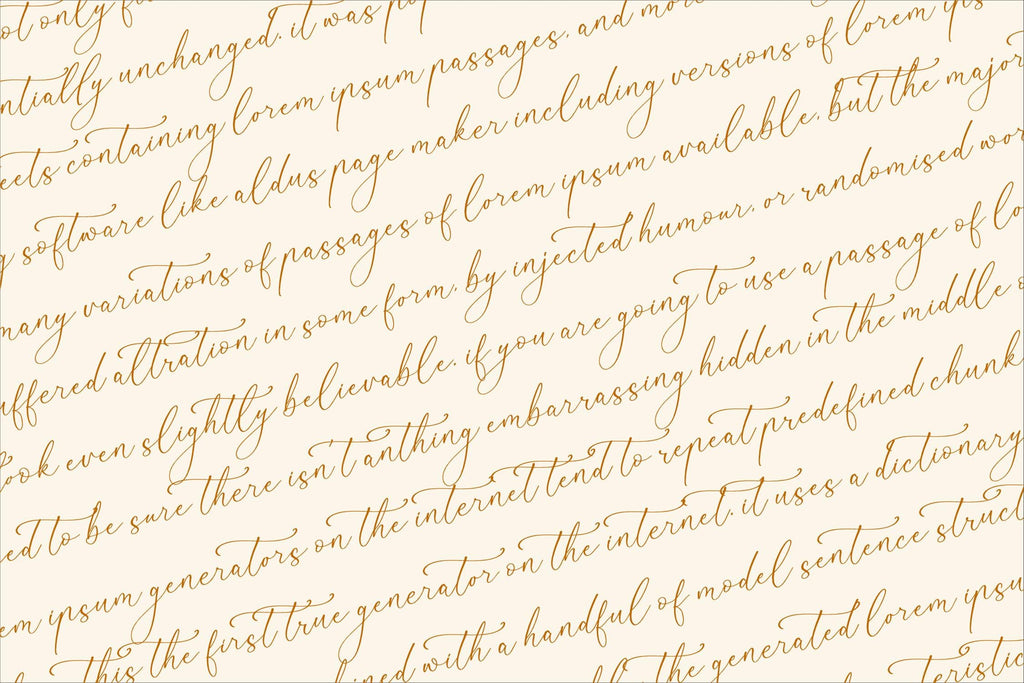 ot only f
ntially unchanged. it was
eets containing lorem ipsum passages. and more
g software like aldus page maker including versions of lorem ips
many variations of passages of lorem ipsum available. but the major
uffered altration in some form. by injected humour. or randomised wor
look even slightly believable. if you are going to use a passage of lo
ed to be sure there isn't anthing embarrassing hidden in the middle o
em ipsum generators on the internet tend to repeat predefined chunk
this the first true generator on the internet. it uses a dictionary
bined with a handful of model sentence struct
the generated lorem ipsu
teristic